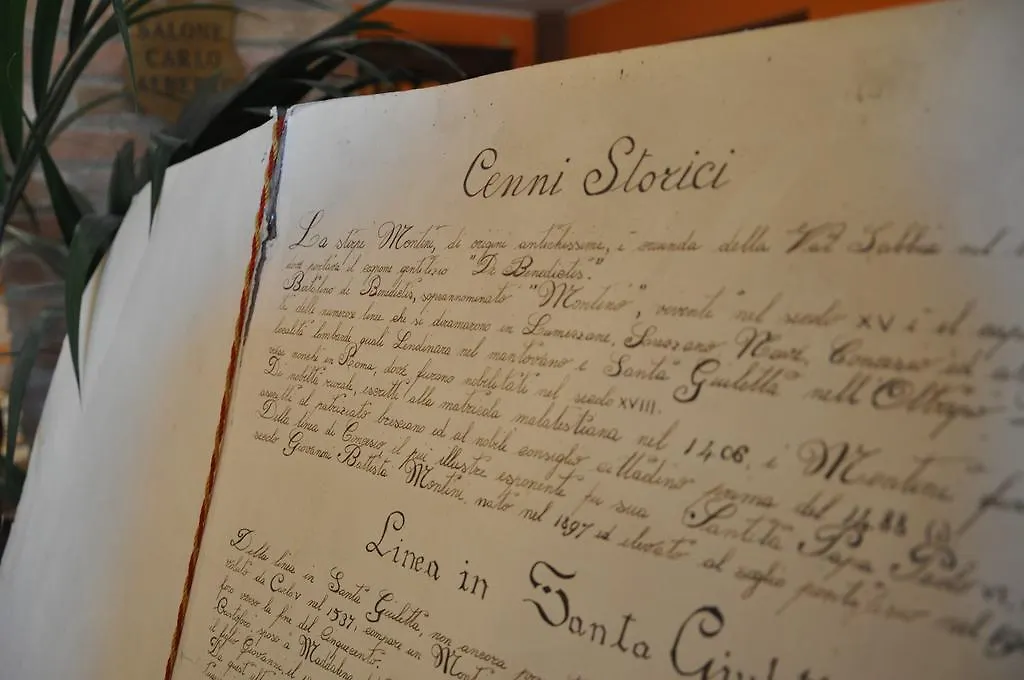 SALONE
CARLO
ALBERTO
Cenni Storici
La stirpe Montini, di origini antichissime, è oriunda della Val Sabbia nel
dove portava il cognome gentilizio "De Benedictis".
Bertolino de Benedictis, soprannominato "Montino", vivente nel secolo XV è il
te delle numerose linee che si diramarono in Lumezzane, Sarezzano Nave, Concesio ed
località lombarde quali Lendinara nel mantovano e Santa Giuletta nell'Oltrepò
vese nonchè in Roma, dove furono nobilitati nel secolo XVIII.
Di nobiltà rurale, iscritti alla matricola malatestiana nel 1406, i Montini
ascritti al patriziato bresciano ed al nobile consiglio cittadino prima del 1488
Della linea di Concesio il più illustre esponente fu sua Santità Papa Paolo VI,
secolo Giovanni Battista Montini, nato nel 1897 ed elevato al soglio pontificio nel
Linea in Santa Giul
Della linea in Santa Giuletta, non ancora
voluto da Carlo V nel 1537, compare un Mont
fors verso la fine del Cinquecento.
Cristoforo sposò a Maddalena
il figlio Giovanni, il
Da quest'ult